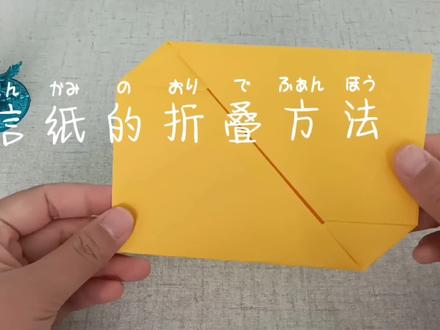 ん かみ の おり で ふぁん ほう
信纸的折叠方法